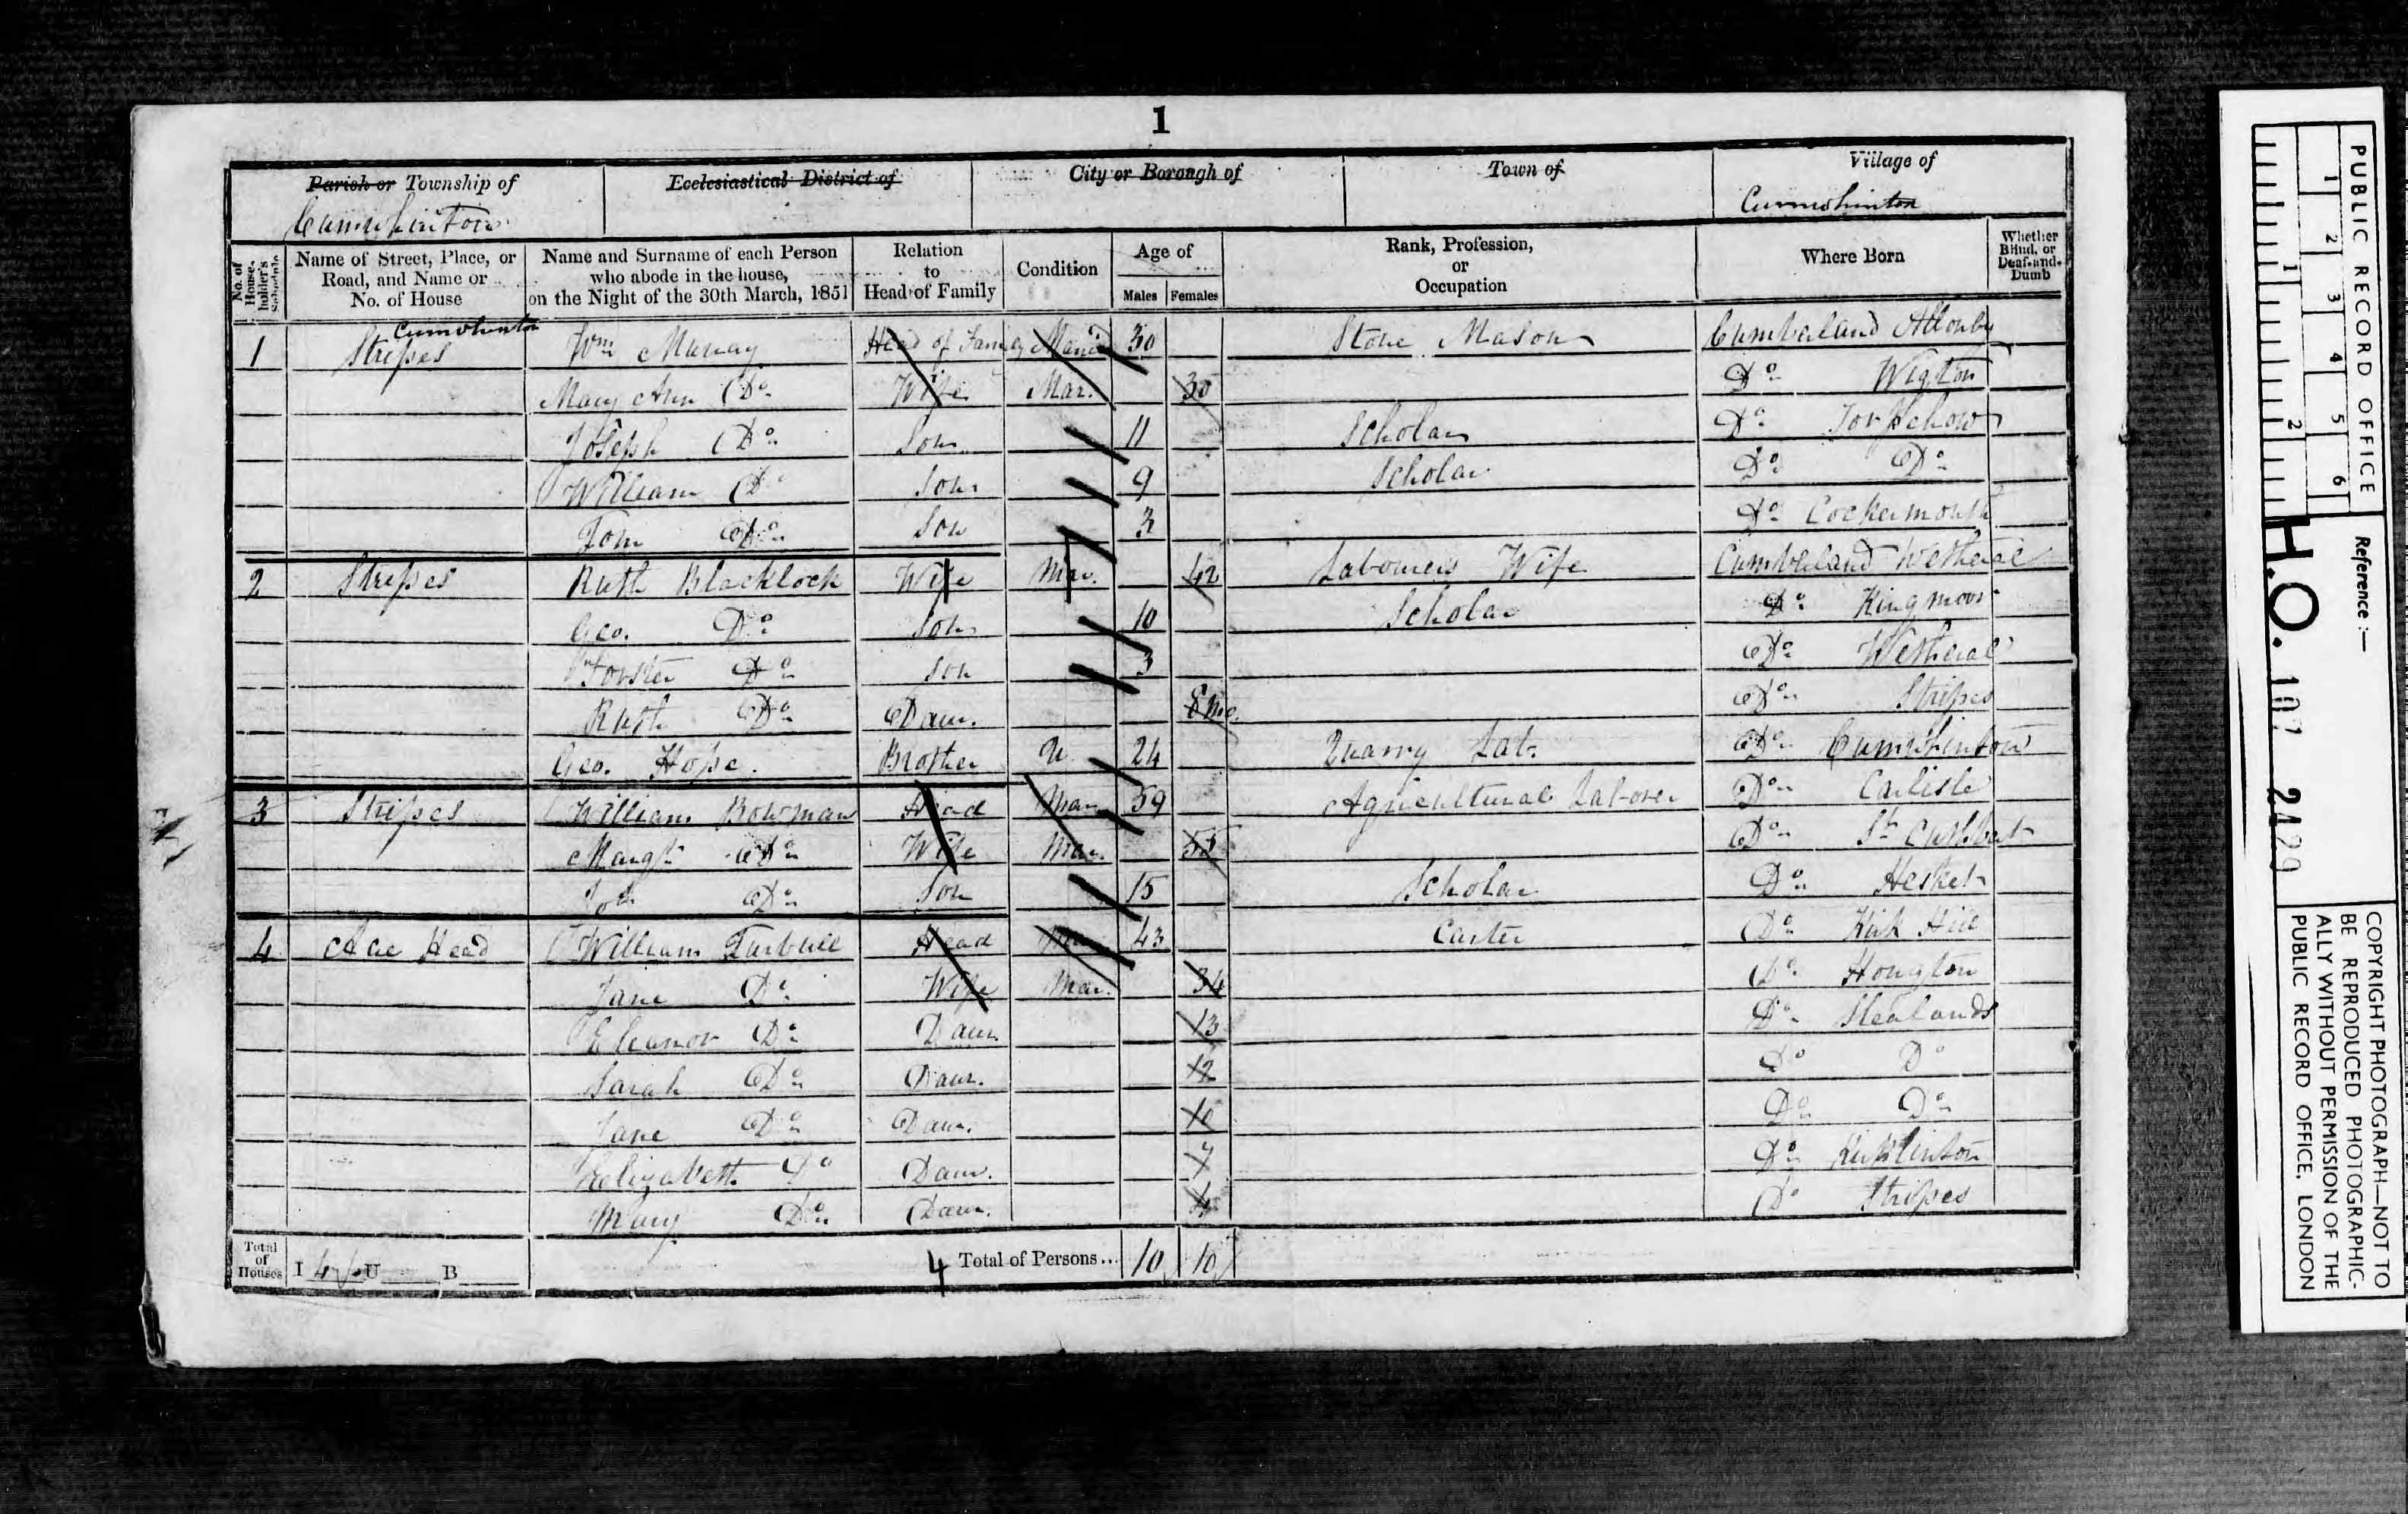 1
Parish or Township of Ecclesiastical District of City or Borough of Town of Village of
Cumwhinton Cumwhinton
No. of House-holder's Schedule Name of Street, Place, or Road, and Name or No. of House Name and Surname of each Person who abode in the house, on the Night of the 30th March, 1851 Relation to Head of Family Condition Age of Males Females Rank, Profession, or Occupation Where Born Whether Blind, or Deaf-and-Dumb
1 Cumwhinton Stripes Wm Head of Family Married 30 Stone Mason Cumberland Allonby
Mary Ann Do Wife Mar. 30 Do Wigton
Joseph Do Son 11 Scholar Do
William Do Son 9 Scholar Do Do
Do Son 3 Do Cockermouth
2 Stripes Ruth Blacklock Wife Mar. 42 Labourers Wife Cumberland Wetheral
Geo. Do Son 10 Scholar Do Kingmoor
Forster Do Son 3 Do Wetheral
Ruth Do Daur. 8 mo. Do Stripes
Geo. Hope Brother U 24 Quarry Lab. Do Cumwhinton
3 Stripes William Bowman Head Mar 59 Agricultural Labourer Do Carlisle
Margt Do Wife Mar. 55 Do St Cuthbert
Do Son 15 Scholar Do Hesket
4 Head William Turbull Head Mar 43 Carter Do Kirk Hill
Jane Do Wife Mar. 34 Do Hougton
Eleanor Do Daur 13 Do Stealands
Sarah Do Daur. 12 Do Do
Jane Do Daur. 10 Do Do
Elizabeth Do Daur. 7 Do Kirklinton
Mary Do Daur. 4 Do Stripes
Total of Houses I 4 U B 4 Total of Persons... 10 10
PUBLIC RECORD OFFICE
1 2 3 4 5 6
1 2
Reference :—
H.O. 107 2429
COPYRIGHT PHOTOGRAPH—NOT TO
BE REPRODUCED PHOTOGRAPHIC-
ALLY WITHOUT PERMISSION OF THE
PUBLIC RECORD OFFICE, LONDON